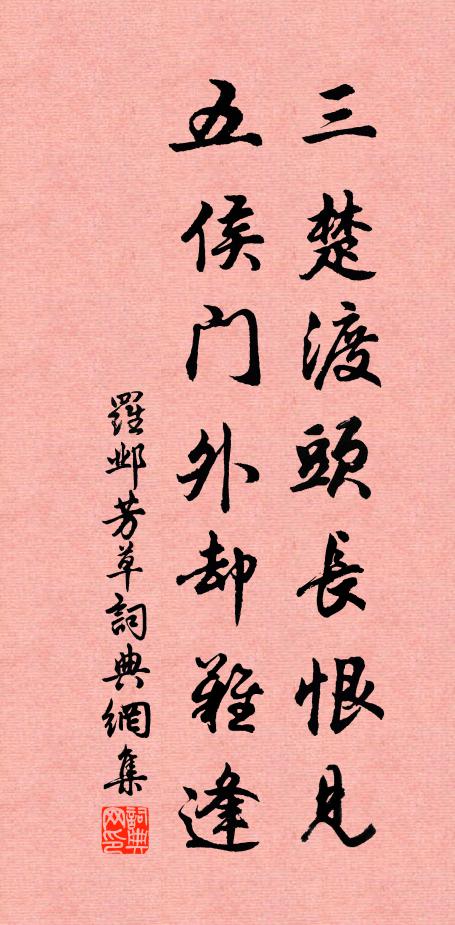 三楚渡頭長恨見
五侯門外却難逢
羅鄴芳草詞典網集
詞典網印